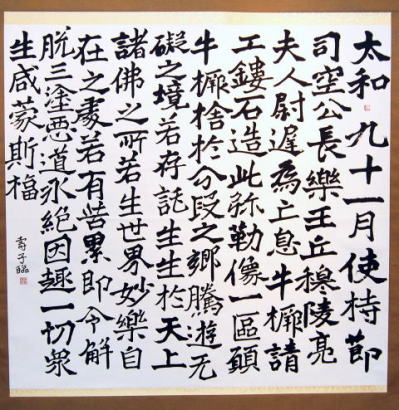 太和九十一月使持節
司空公長樂王丘穆陵亮
夫人尉遲為亡息牛橛請
工鏤石造此弥勒像一區願
牛橛捨於分段之鄉騰遊无
礙之境若存託生生於天上
諸佛之所若生世界妙樂自
在之處若有苦累即令解
脫三塗惡道永絕因趣一切眾
生咸蒙斯福
壽子臨